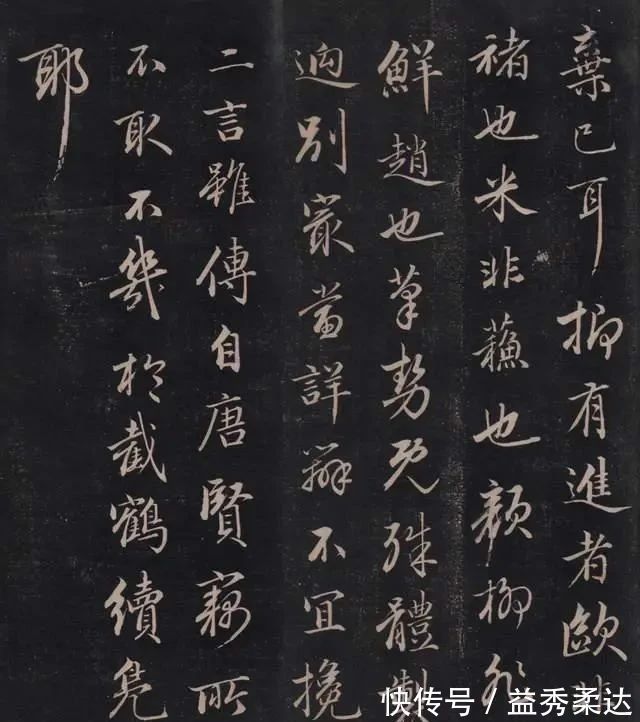 棄已耳抑有進者歐非
褚也米非蘓也顏柳
鮮趙也筆勢既殊體製
迥別最當詳辨不宜攙
二言雖傳自唐賢竊所
不取不幾於截鶴續鳧
耶
快传号/益秀柔达